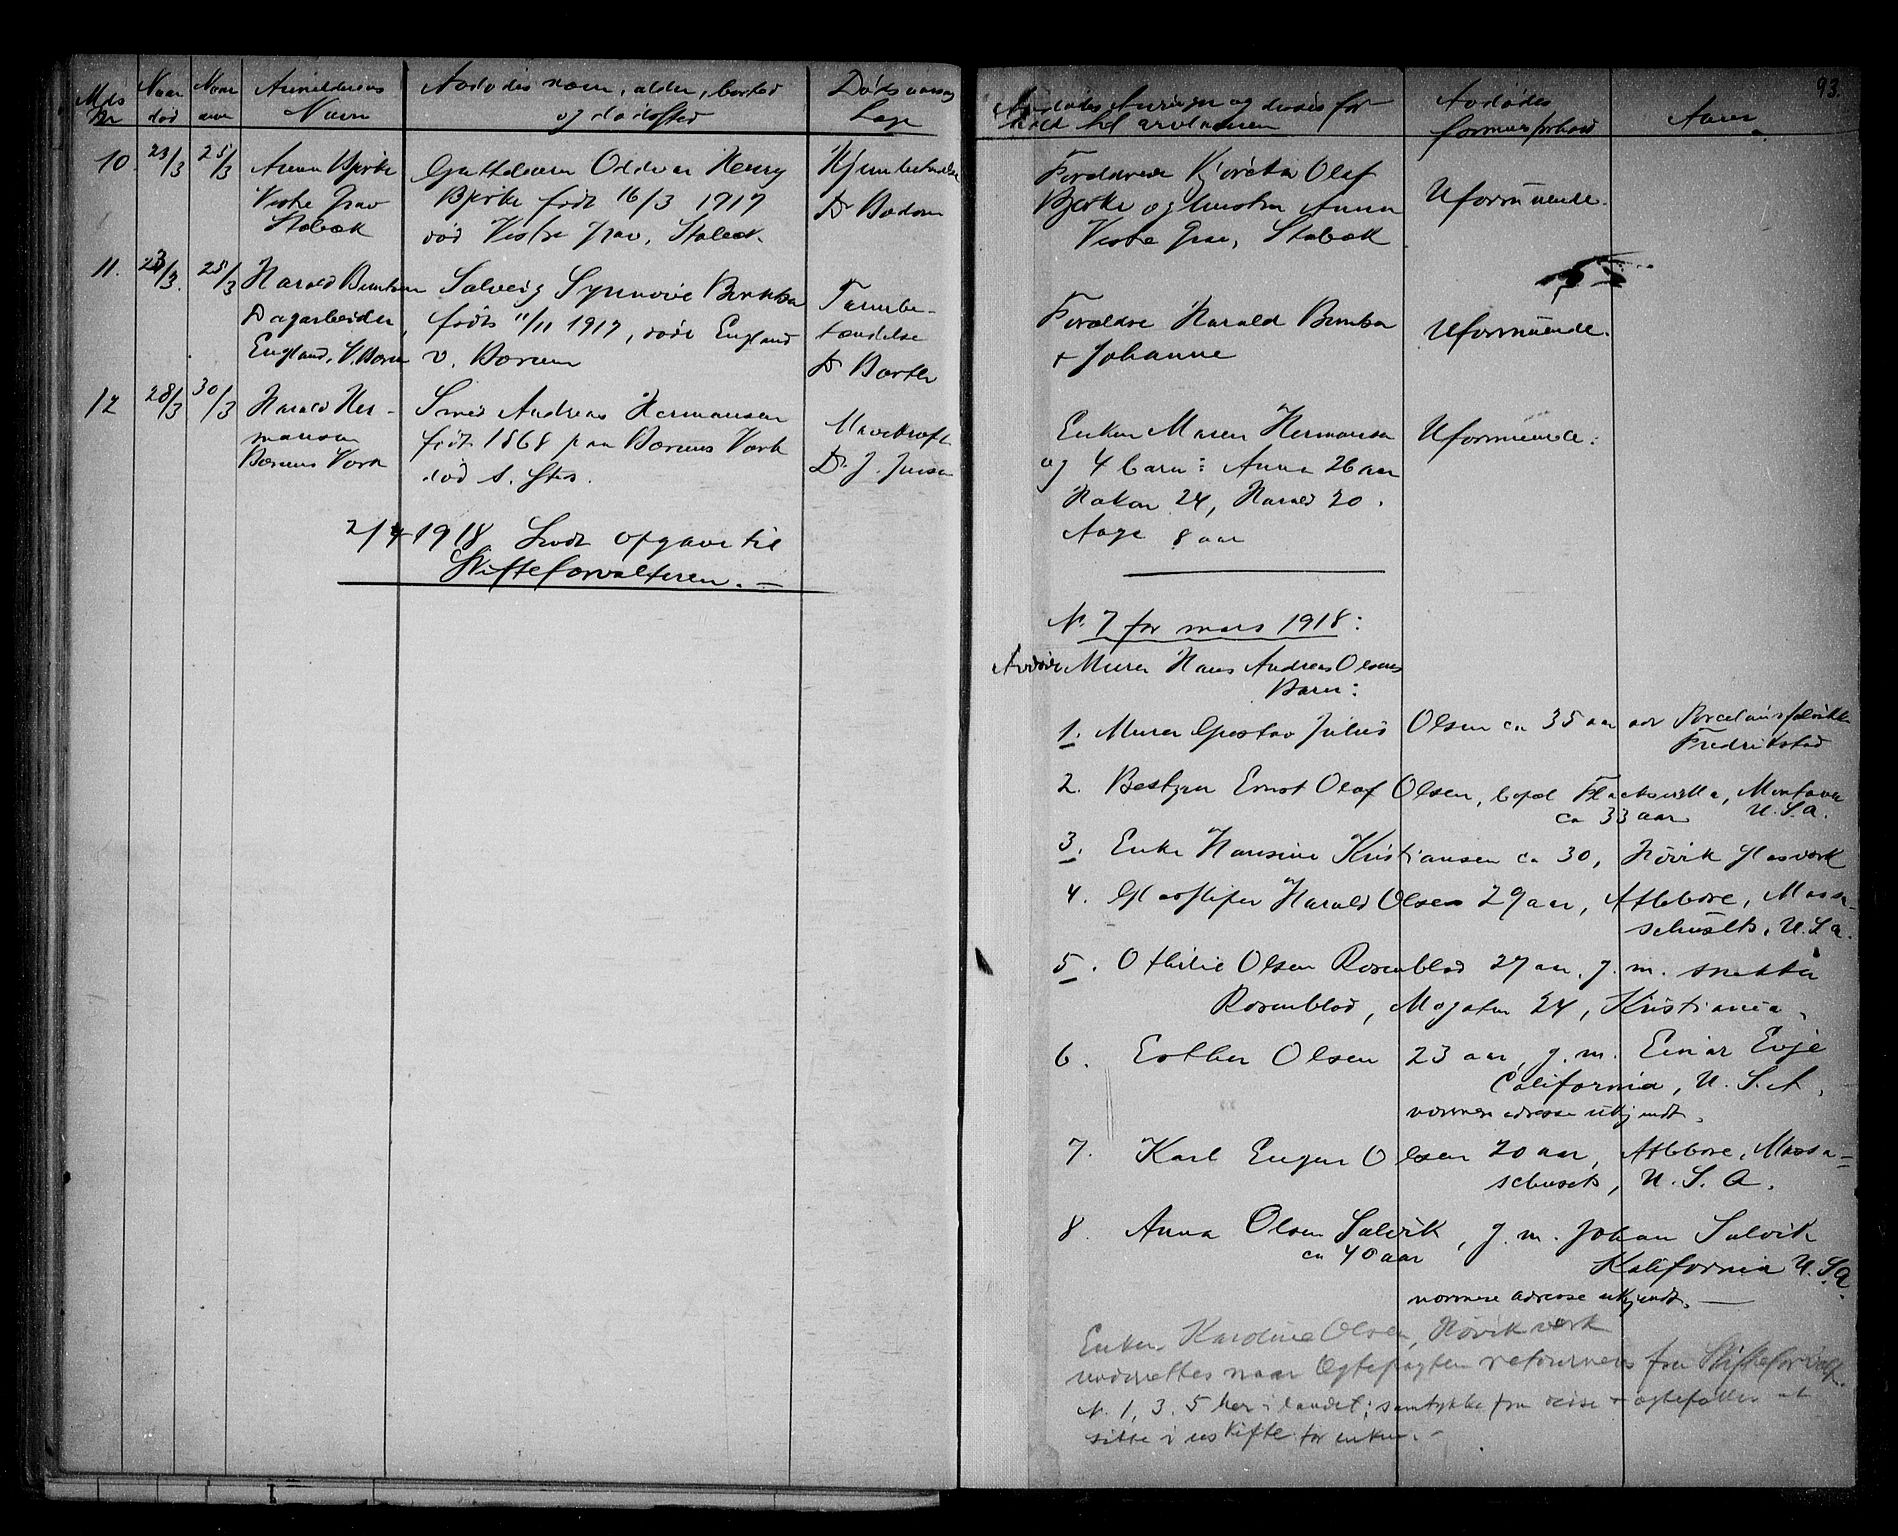 93.
Mds Nr
Naar død
Naar anm
Anmelderens Navn
Avdødes navn, alder, bosted og dødssted
Dødsaarsag Læge
Avdødes
formuesforhold
10 23/3 25/3
Anna Bjerke
Vestre Grav
Stabæk
Guttebarn Oddvar Henry
Bjerke født 16/3 1917
død Vestre Grav, Stabæk.
Forældrene Kjøreta Olaf
Bjerke og hustru Anna
Vestre Grav, Stabæk
Uformuende.
11. 23/3. 25/3
Harald
Dagarbeider,
England, V. Bærum
Solveig Synnøve
født 11/11 1917, død England
V. Bærum
Dr Barth
Forældre Harald
+ Johanne
Uformuende.
12 28/3 30/3
Harald Her-
mansen
Bærums Værk
Smed Andreas Hermansen
født 1868 paa Bærums Værk
død s. sted.
Mavekræft
Dr. J. Jensen
Enken Maren Hermansen
og 4 barn: Anna 26 aar
Hakon 24, Harald 20.
Aage 8 aar
Uformuende.
2/4 1918 Sendt opgave til
Skifteforvalteren. –
N. 7 for mars 1918:
Avdøde Murer Hans Andreas Olsens
Barn:
1. Murer Gustav Julius Olsen ca 35 aar adr Porcelænsfabrikken
Fredrikstad
2. Bestyrer Ernst Olaf Olsen, Montana
ca 33 aar U.S.A.
3. Enke Hansine Kristiansen ca 30, Høvik Glasværk
4. Glassliper Harald Olsen 29 aar, Attleboro, Massa-
schusets, U.S.A.
5. Othilie Olsen Rosenblad 27 aar, g. m.
Rosenblad, 24, Kristiania.
6. Esther Olsen 23 aar, g. m. Einar Evje
California, U. S. A.
nærmere adresse ukjendt.
7. Karl Eugen Olsen 20 aar, Attleboro, Massa=
schusets, U. S. A.
8. Anna Olsen Salvik, g. m. Johan Salvik
ca 40 aar
Kalifornia U.S.A.
nærmere adresse ukjendt. —
Enken Karoline Olsen, Høvik værk
underrettes naar Egtepagten retourneres fra Skifteforvalt.
N. 1, 3, 5 her i landet; samtykke fra disse + egtefæller at
sitte i uskifte for enken. –